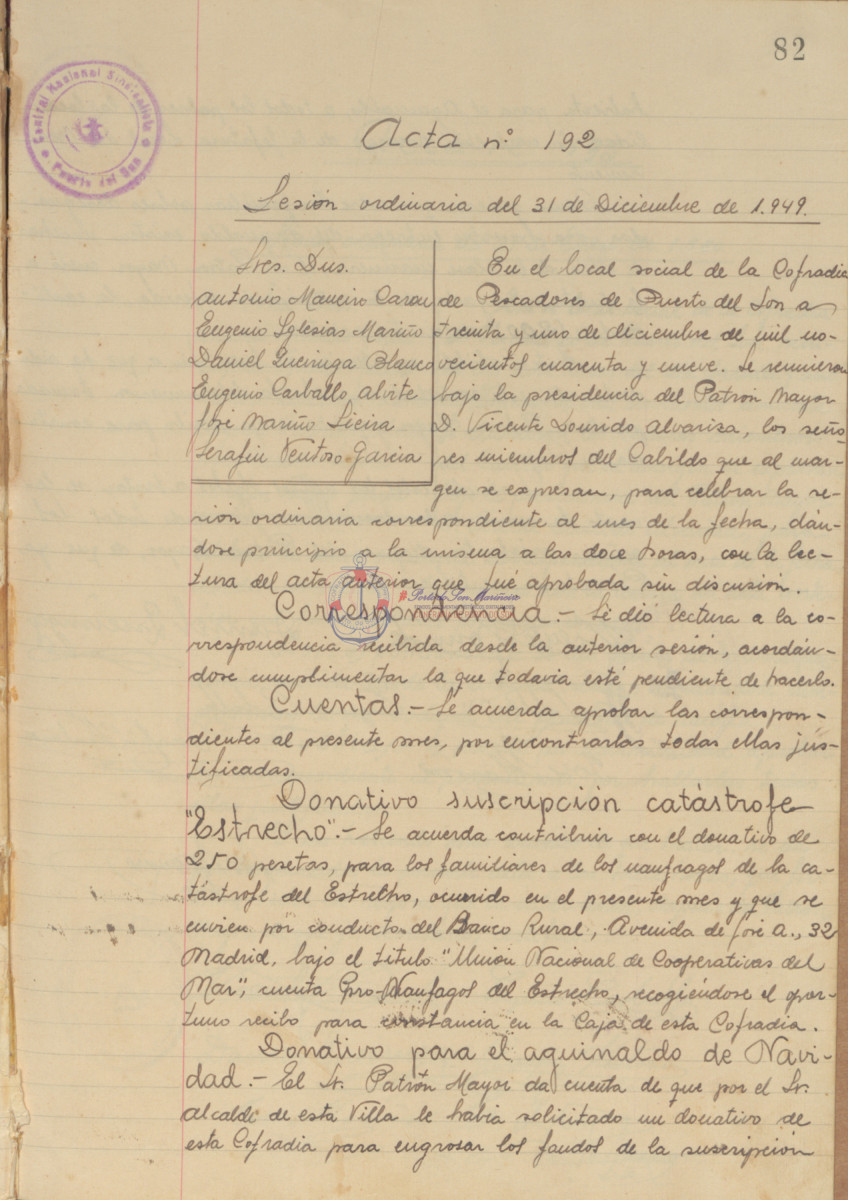 82
Central Nacional Sindicalista
Puerto del Son
Acta nº 192
Sesión ordinaria del 31 de Diciembre de 1.949.
Sres. Dns.
Antonio Maneiro Carou
Eugenio Yglesias Mariño
Daniel Queiruga Blanco
Eugenio Carballo Alvite
José Mariño Sieira
Serafin Ventoso Garcia
En el local social de la Cofradia
de Pescadores de Puerto del Son a
treinta y uno de diciembre de mil no-
vecientos cuarenta y nueve. Se reunieron
bajo la presidencia del Patrón Mayor
D. Vicente Lourido Alvariza, los seño
res miembros del Cabildo que al mar-
gen se expresan, para celebrar la se-
sión ordinaria correspondiente al mes de la fecha, dán-
dose principio a la misma a las doce horas, con la lec-
tura del acta anterior que fué aprobada sin discusión.
Correspondencia.- Se dió lectura a la co-
rrespondencia recibida desde la anterior sesión, acordán-
dose cumplimentar la que todavia esté pendiente de hacerlo.
Cuentas.- Se acuerda aprobar las correspon-
dientes al presente mes, por encontrarlas todas ellas jus-
tificadas.
Donativo suscripción catástrofe
"Estrecho".- Se acuerda contribuir con el donativo de
250 pesetas, para los familiares de los naufragos de la ca-
tástrofe del Estrecho, ocurrido en el presente mes y que se
envien por conducto del Banco Rural, Avenida de José A., 32
Madrid, bajo el titulo "Unión Nacional de Cooperativas del
Mar", cuenta Pro-Naufagos del Estrecho, recogiéndose el opor-
tuno recibo para constancia en la Caja de esta Cofradia.
Donativo para el aguinaldo de Navi-
dad.- El Sr. Patrón Mayor da cuenta de que por el Sr.
alcalde de esta Villa le habia solicitado un donativo de
esta Cofradia para engrosar los fondos de la suscripción